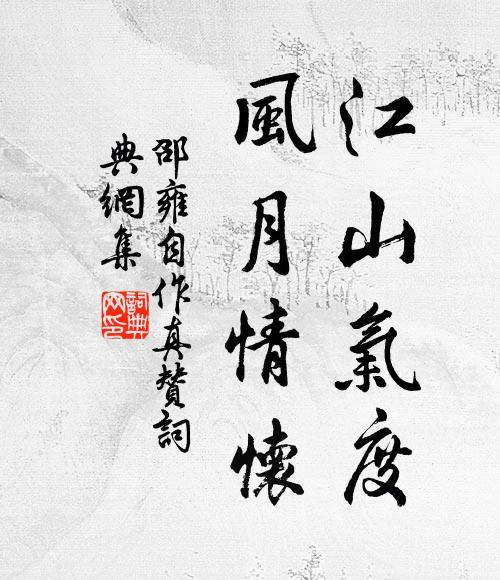 江山氣度
風月情懷
邵雍自作真贊詞
典網集
詞典网印